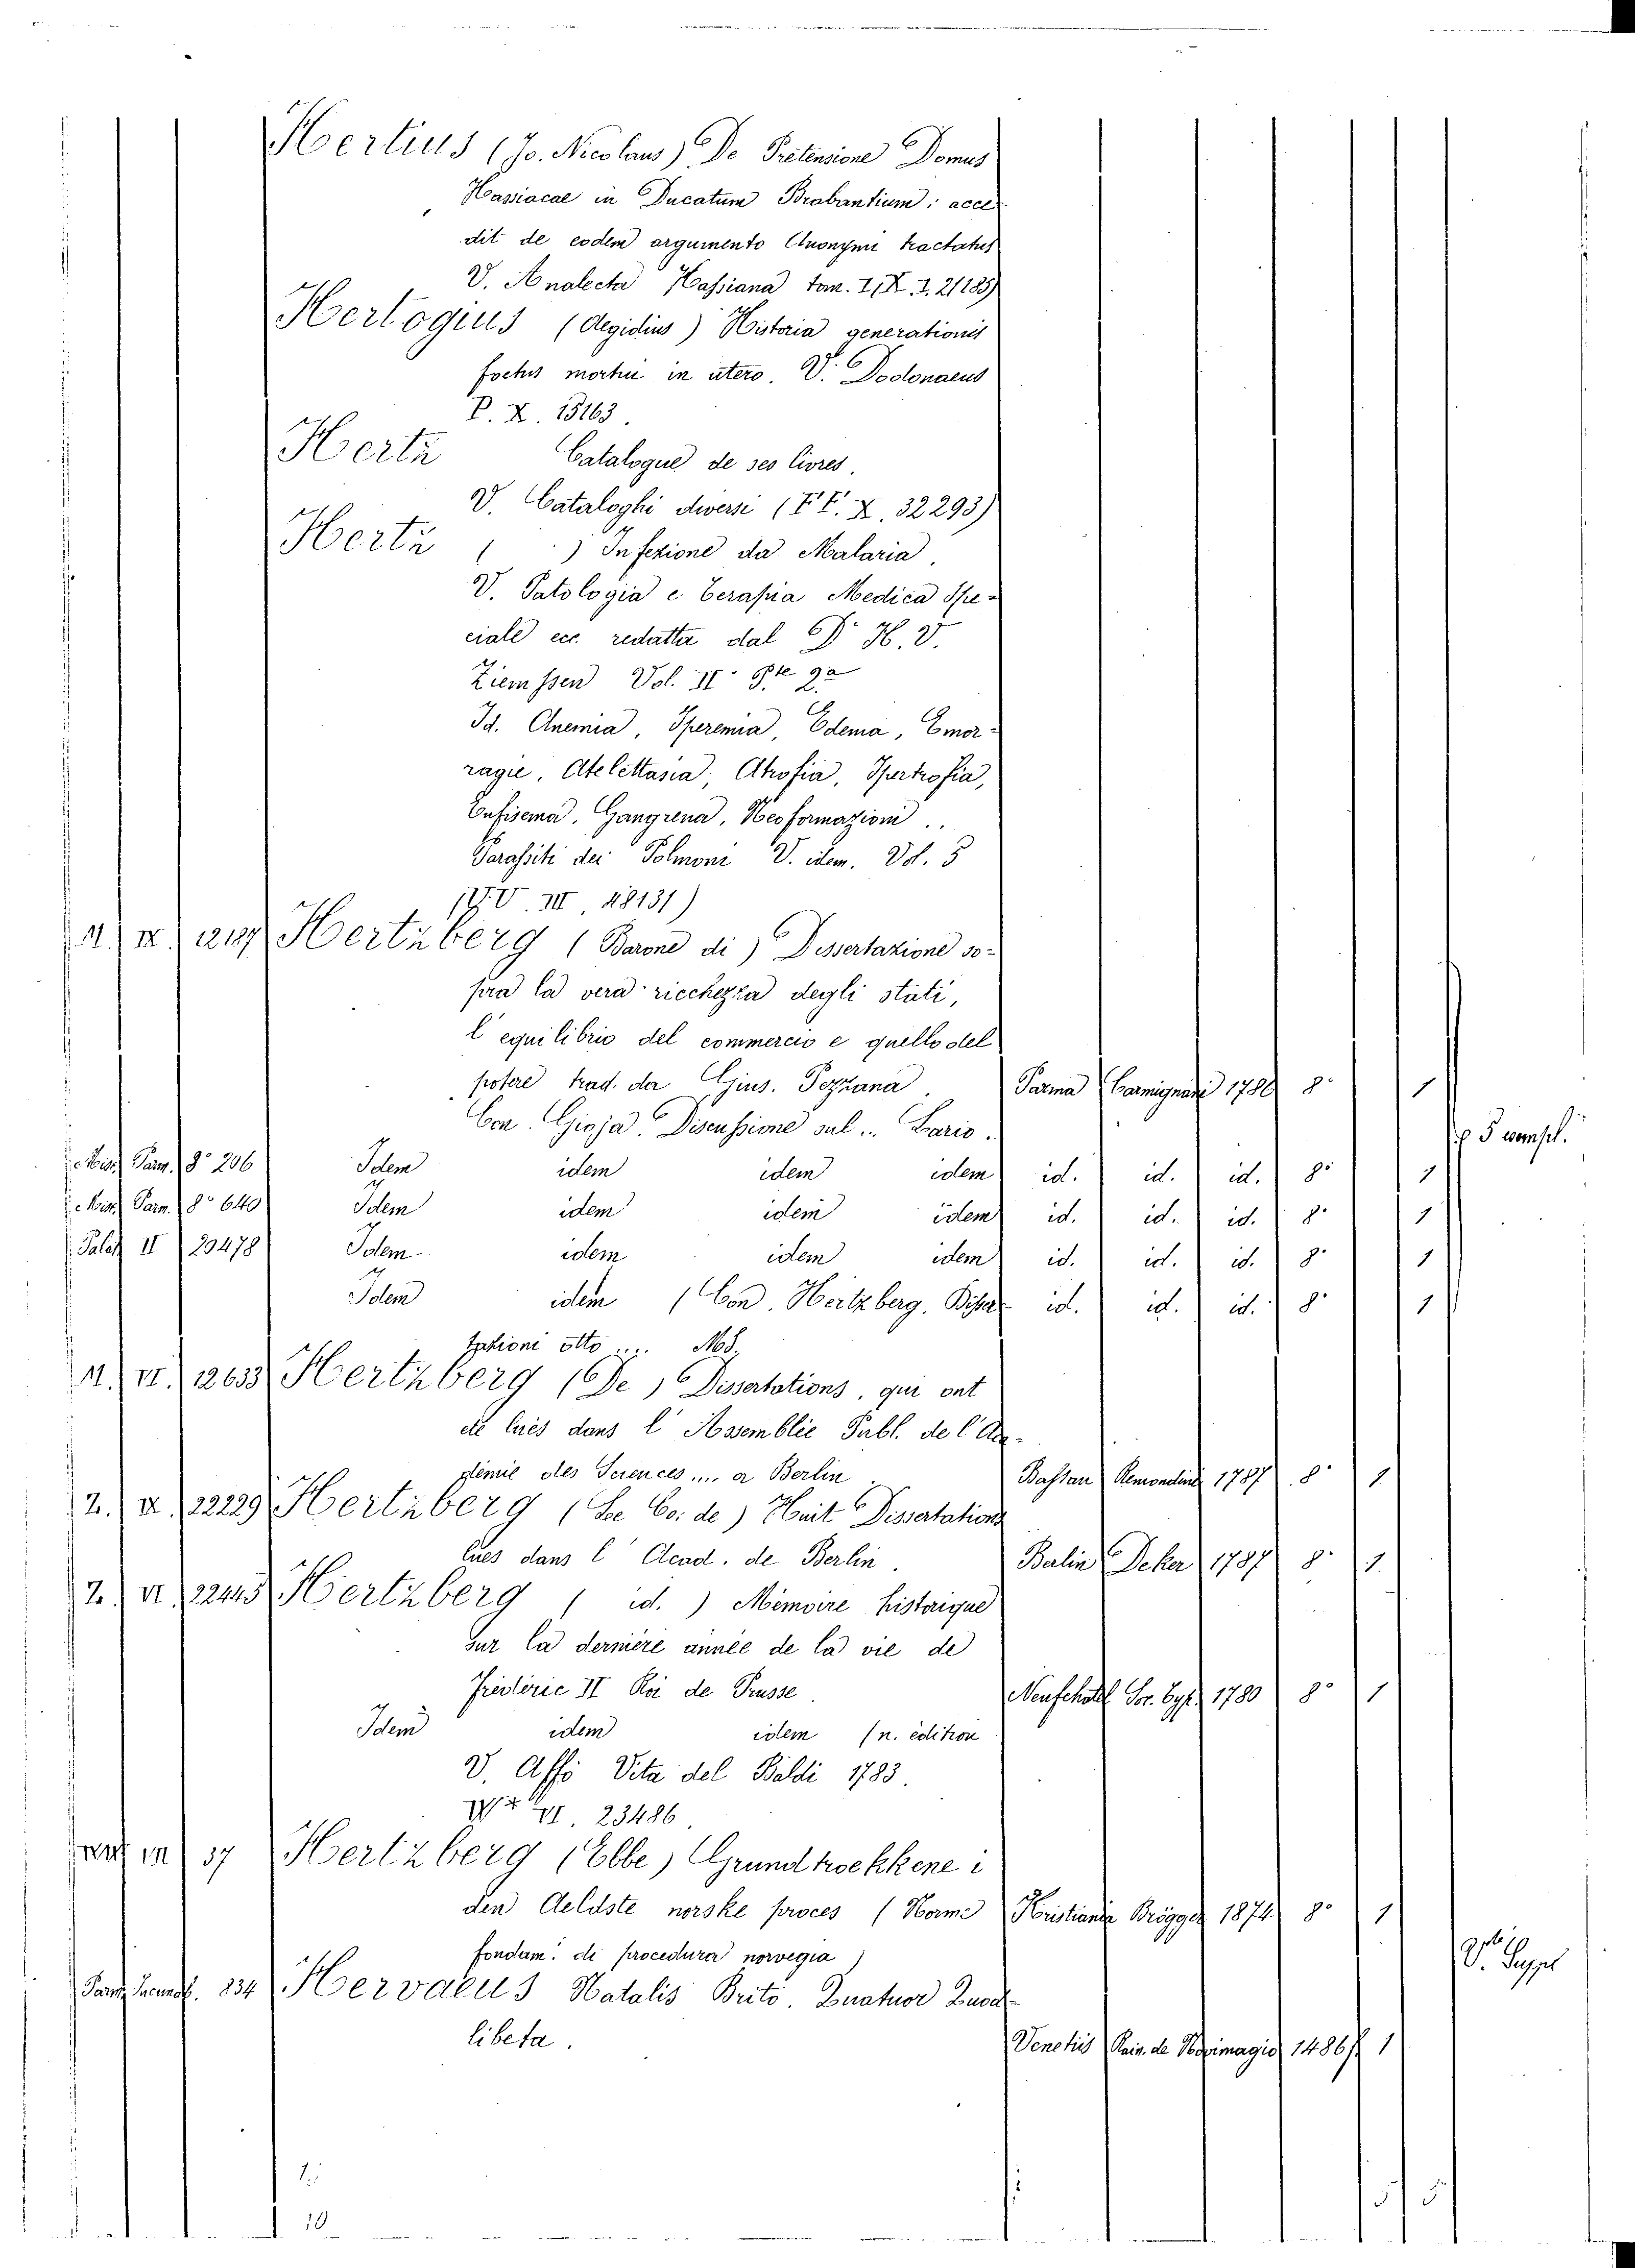 Hertius (Jo. Nicolaus) De Pretensione Domus
Hassiacae in Ducatum Brabantium; acce
dit de eodem argumento Anonymi tractatus
V. Analecta Hassiana tom. I, X. I. 21185)
Hertogius (Aegidius) Historia generationis
foetus mortui in utero. V. Dodonaeus
P. X. 15163.
Hertz Catalogue de ses livres.
V. Cataloghi diversi (F.F. X. 32293)
Hertz ( ) Infezione da Malaria.
V. Patologia e Terapia Medica Spe-
ciale ecc. redatta dal Dr H. V.
Ziemssen Vol. II Pte 2a
Id. Anemia, Iperemia, Edema, Emor-
ragie, Atelettasia, Atrofia, Ipertrofia,
Enfisema, Gangrena, Neoformazioni..
Parassiti dei Polmoni V. idem. Vol. 5
V. III. 48131)
Hertzberg (Barone di) Dissertazione so-
pra la vera ricchezza degli stati,
l'equilibrio del commercio e quello del
potere trad. da Gius. Pezzana. Parma Carmignani 1786 8° 1
Con. Gioja. Discussione sul... Lario.
5 esempl.
Misc. Parm. 8° 206 Idem idem idem idem id. id. id. 8° 1
Misc. Parm. 8° 640 Idem idem idem idem id. id. id. 8° 1
Palat. II 20478 Idem idem idem idem id. id. id. 8° 1
Idem idem (Con. Hertzberg. Disser id. id. id. 8° 1
tationi otto .... Ms.
M. VI. 12633 Hertzberg (De) Dissertations, qui ont
été lues dans l'Assemblée Publ. de l'Aca-
démie des Sciences.... a Berlin. Bassan Remondini 1787 8° 1
22229 Hertzberg (Le Co. de) Huit Dissertations
lues dans l'Acad. de Berlin. Berlin Deker 1787 8° 1
Z. VI 22445 Hertzberg (id.) Mémoire historique
sur la dernière année de la vie de
Fréderic II Roi de Prusse. Neufchatel Soc. Typ. 1780 8° 1
Idem idem idem (n. édition
V. Affò Vita del Baldi 1783.
VI. 23486
37 Hertzberg (Ebbe) Grundtraekkene i
den Aeldste norske proces (Norme Kristiania Brögger 1874 8° 1
fondam. di procedura norvegia)
V. Suppl
834 Hervaeus Natalis Brito. Quatuor Quod-
libeta. Venetiis Rain. de Novimagio 1486 f 1
1.
10
5 5